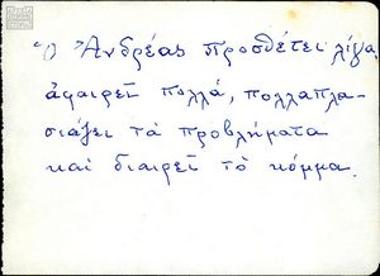 Ὁ Ἀνδρέας προσθέτει λίγα,
ἀφαιρεῖ πολλά, πολλαπλα-
σιάζει τὰ προβλήματα
καὶ διαιρεῖ τὸ κόμμα.